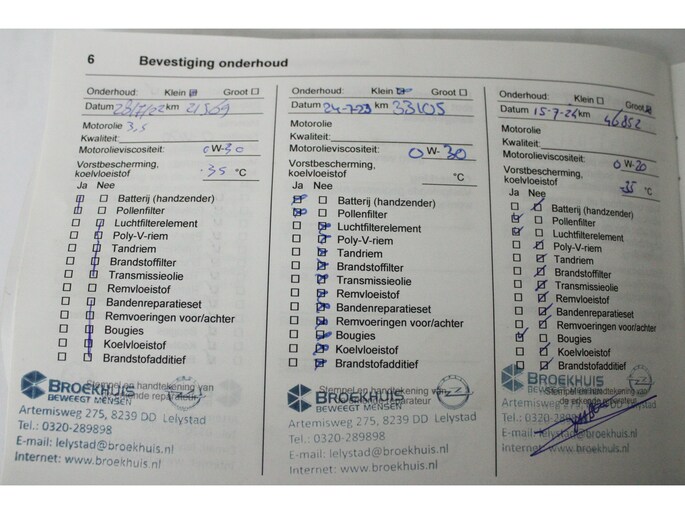 6 Bevestiging onderhoud
Onderhoud: Klein Groot
Datum km 21569
Motorolie 3,5
Kwaliteit:
Motorolieviscositeit: 0 W-30
Vorstbescherming,
koelvloeistof -35 °C
Ja Nee
Batterij (handzender)
Pollenfilter
Luchtfilterelement
Poly-V-riem
Tandriem
Brandstoffilter
Transmissieolie
Remvloeistof
Bandenreparatieset
Remvoeringen voor/achter
Bougies
Koelvloeistof
Brandstofadditief
Stempel en handtekening van
de erkende reparateur
BROEKHUIS
BEWEEGT MENSEN
Artemisweg 275, 8239 DD Lelystad
Tel.: 0320-289898
E-mail: lelystad@broekhuis.nl
Internet: www.broekhuis.nl
Onderhoud: Klein Groot
Datum 24-7-23 km 33105
Motorolie
Kwaliteit:
Motorolieviscositeit: 0 W- 30
Vorstbescherming,
koelvloeistof °C
Ja Nee
Batterij (handzender)
Pollenfilter
Luchtfilterelement
Poly-V-riem
Tandriem
Brandstoffilter
Transmissieolie
Remvloeistof
Bandenreparatieset
Remvoeringen voor/achter
Bougies
Koelvloeistof
Brandstofadditief
Stempel en handtekening van
reparateur
BROEKHUIS
BEWEEGT MENSEN
Artemisweg 275, 8239 DD Lelystad
Tel.: 0320-289898
E-mail: lelystad@broekhuis.nl
Internet: www.broekhuis.nl
Onderhoud: Klein Groot
Datum 15-7-24 km 46852
Motorolie
Kwaliteit:
Motorolieviscositeit: 0 W-20
Vorstbescherming,
koelvloeistof -35 °C
Ja Nee
Batterij (handzender)
Pollenfilter
Luchtfilterelement
Poly-V-riem
Tandriem
Brandstoffilter
Transmissieolie
Remvloeistof
Bandenreparatieset
Remvoeringen voor/achter
Bougies
Koelvloeistof
Brandstofadditief
Stempel en handtekening van
de erkende reparateur
BROEKHUIS
BEWEEGT MENSEN
Artemisweg 275, 8239 DD Lelystad
Tel.: 0320-289898
E-mail: lelystad@broekhuis.nl
Internet: www.broekhuis.nl